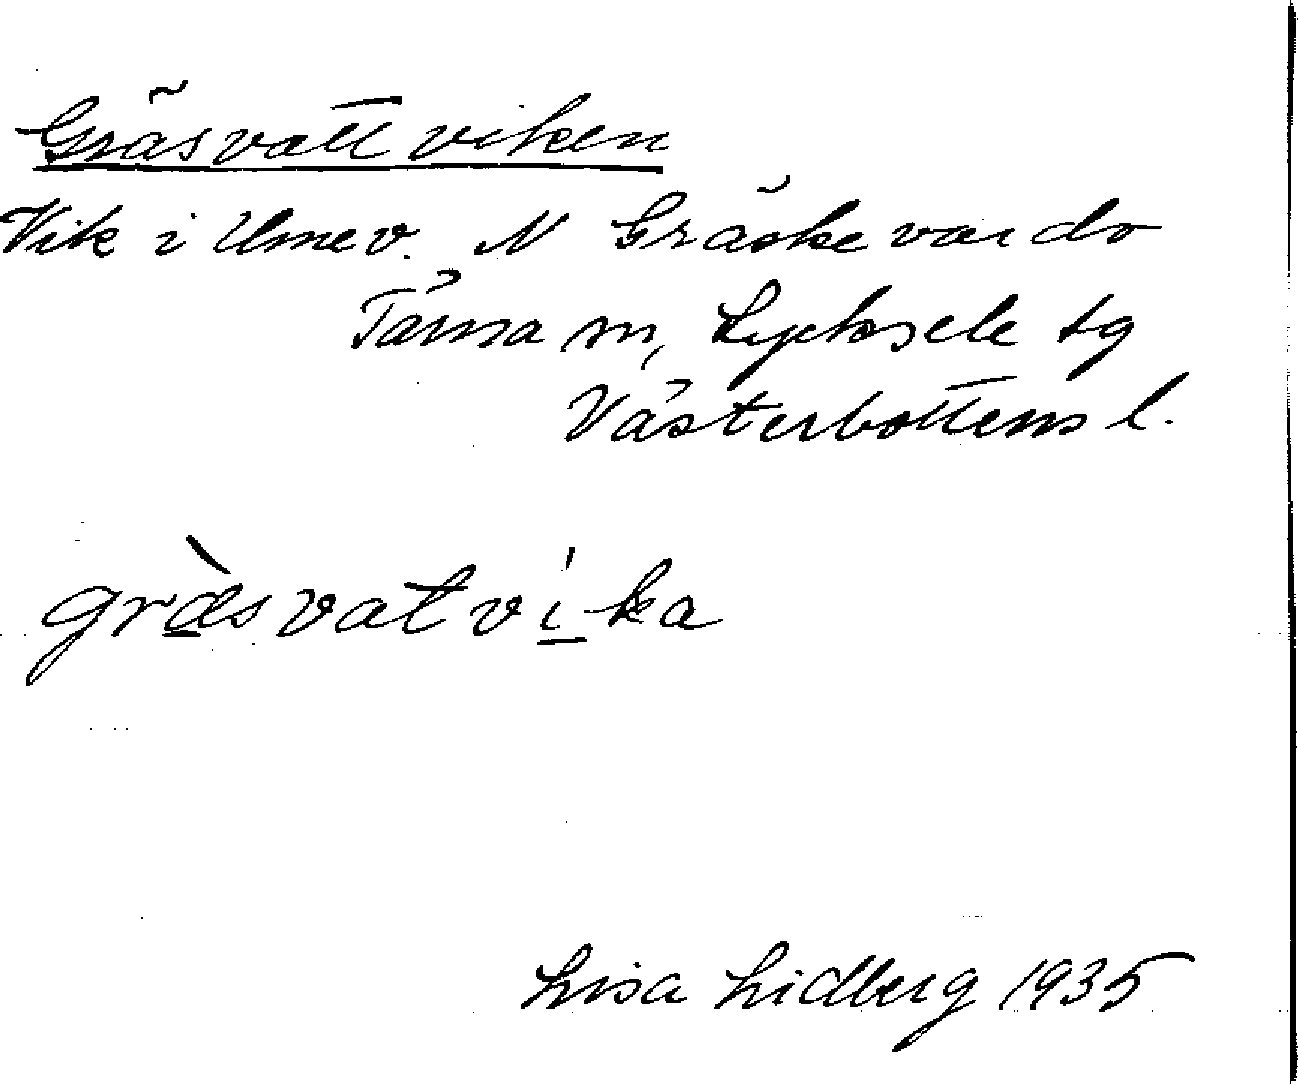 Gräsvattviken
Vik i Umev. N Gräskevardo
Tärna sn, Lycksele tg
Västerbottens l.
græ̀svatvi̍ka
Lisa Lidberg 1935